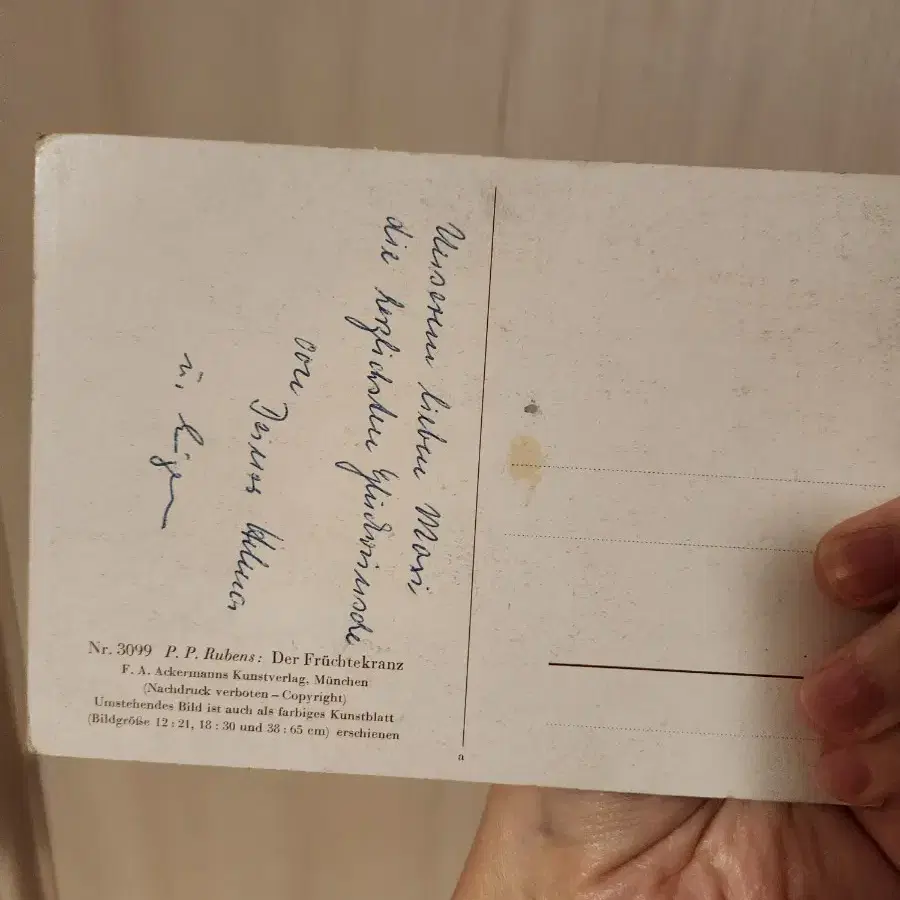 Unserem lieben Maxi
die herzlichsten Glückwünsche
von
Deiner
u. Eugen
Nr. 3099 P. P. Rubens: Der Früchtekranz
F. A. Ackermanns Kunstverlag, München
(Nachdruck verboten – Copyright)
Umstehendes Bild ist auch als farbiges Kunstblatt
(Bildgröße 12 : 21, 18 : 30 und 38 : 65 cm) erschienen
a